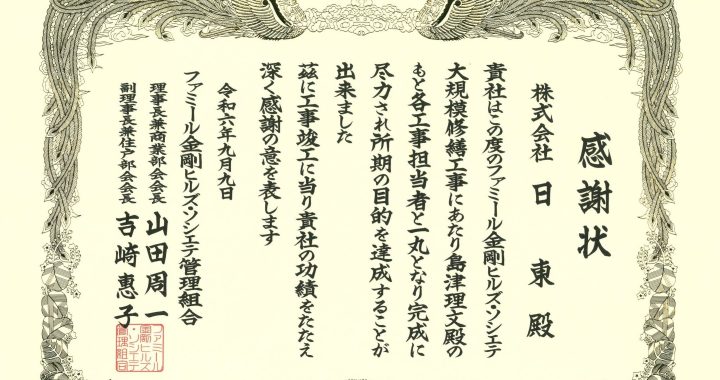 感謝状
株式会社 日東殿
貴社はこの度のファミール金剛ヒルズ・ソシェテ
大規模修繕工事にあたり島津理文殿の
もと各工事担当者と一丸となり完成に
尽力され所期の目的を達成することが
出来ました
茲に工事竣工に当り貴社の功績をたたえ
深く感謝の意を表します
令和六年九月九日
ファミール金剛ヒルズ・ソシェテ管理組合
理事長兼商業部会会長 山田周一
副理事長兼住戸部会会長 吉崎惠子
ファミール
金剛ヒルズ
・ソシェテ
管理組合